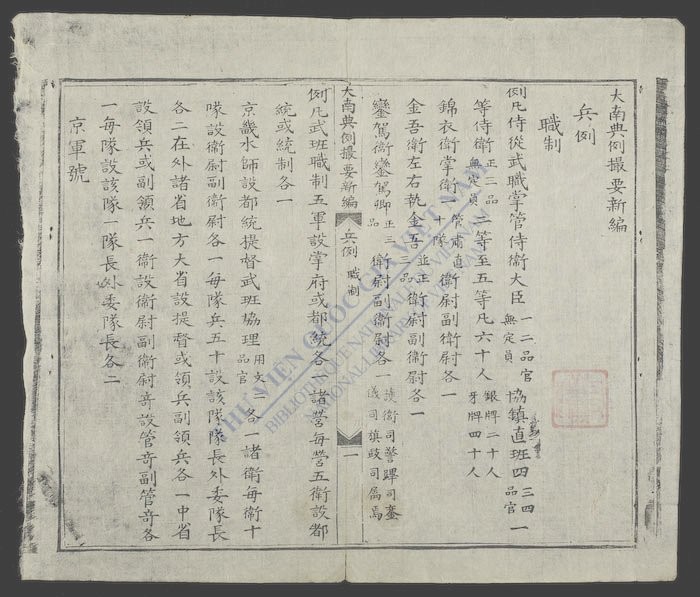 大南典例撮要新編
兵例
職制
例凡侍從武職掌管侍衛大臣一二品官無定員協鎮直班四三四品官一
等侍衛正三品無定員二等至五等凡六十人銀牌二十人牙牌四十人
錦衣衛掌衛一管甫直十隊衛尉副衛尉各一
金吾衛左右執金吾並正三品衛尉副衛尉各一
鑾駕衛鑾駕卿正三品衛尉副衛尉各一護衛司警蹕司鑾儀司旗鼓司屬焉
大南典例撮要新編 兵例 職制 一
例凡武班職制五軍設掌府或都統各一諸營每營五衛設都
統或統制各一
京畿水師設都統提督武班協理用文品官二各一諸衛每衛十
隊設衛尉副衛尉各一每隊兵五十設該隊隊長外委隊長
各二在外諸省地方大省設提督或領兵副領兵各一中省
設領兵或副領兵一衛設衛尉副衛尉奇設管奇副管奇各
一每隊設該隊一隊長外委隊長各二
京軍號
THƯ VIỆN QUỐC GIA VIỆT NAM
BIBLIOTHÈQUE NATIONALE DU VIETNAM
NATIONAL LIBRARY OF VIETNAM